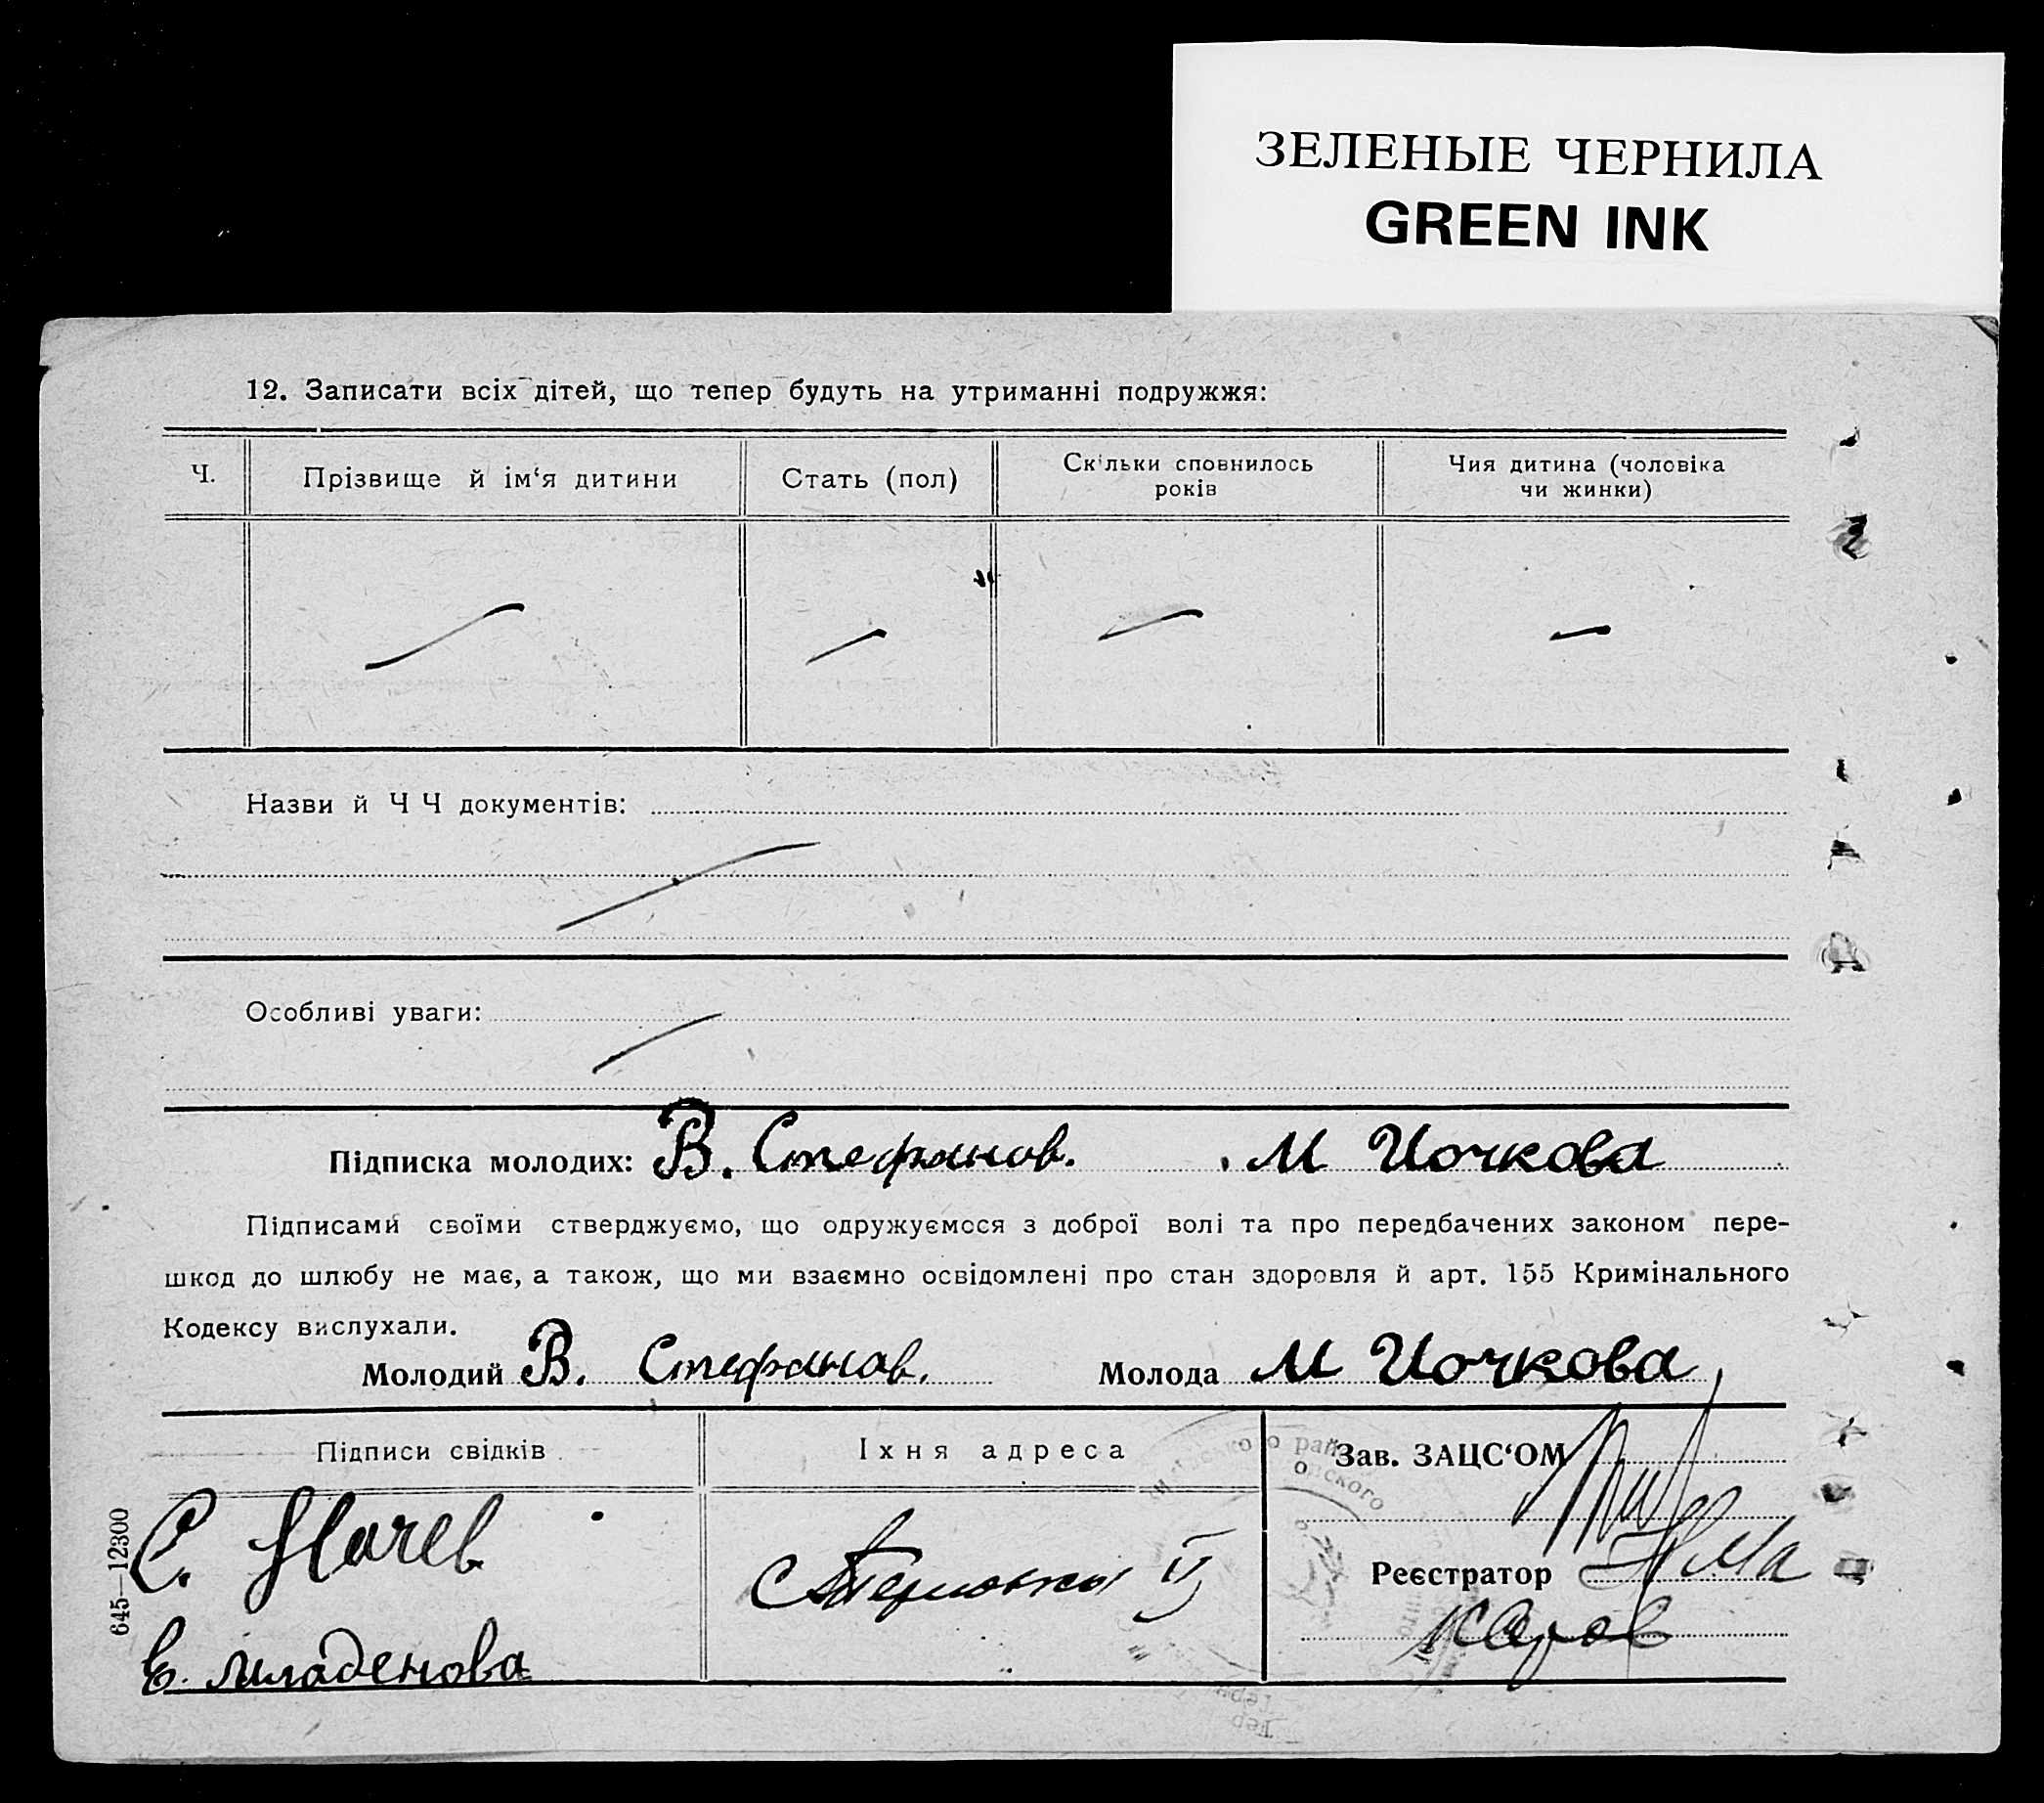 ЗЕЛЕНЫЕ ЧЕРНИЛА
GREEN INK
12. Записати всіх дітей, що тепер будуть на утриманні подружжя:
Ч.
Прізвище й ім‘я дитини
Стать (пол)
Скільки сповнилось
років
Чия дитина (чоловіка
чи жинки)
Назви й Ч Ч документів:
Особливі уваги:
Підписка молодих: В. Стефанов. М Иочкова
Підписами своїми стверджуємо, що одружуємося з доброї волі та про передбачених законом пере-
шкод до шлюбу не має, а також, що ми взаємно освідомлені про стан здоровля й арт. 155 Кримінального
Кодексу вислухали.
Молодий В. Стефанов. Молода М Иочкова
Підписи свідків
Їхня адреса
Зав. ЗАЦС‘ОМ
С.
Е. Младенова
С. Терновка
Реєстратор
645—12300